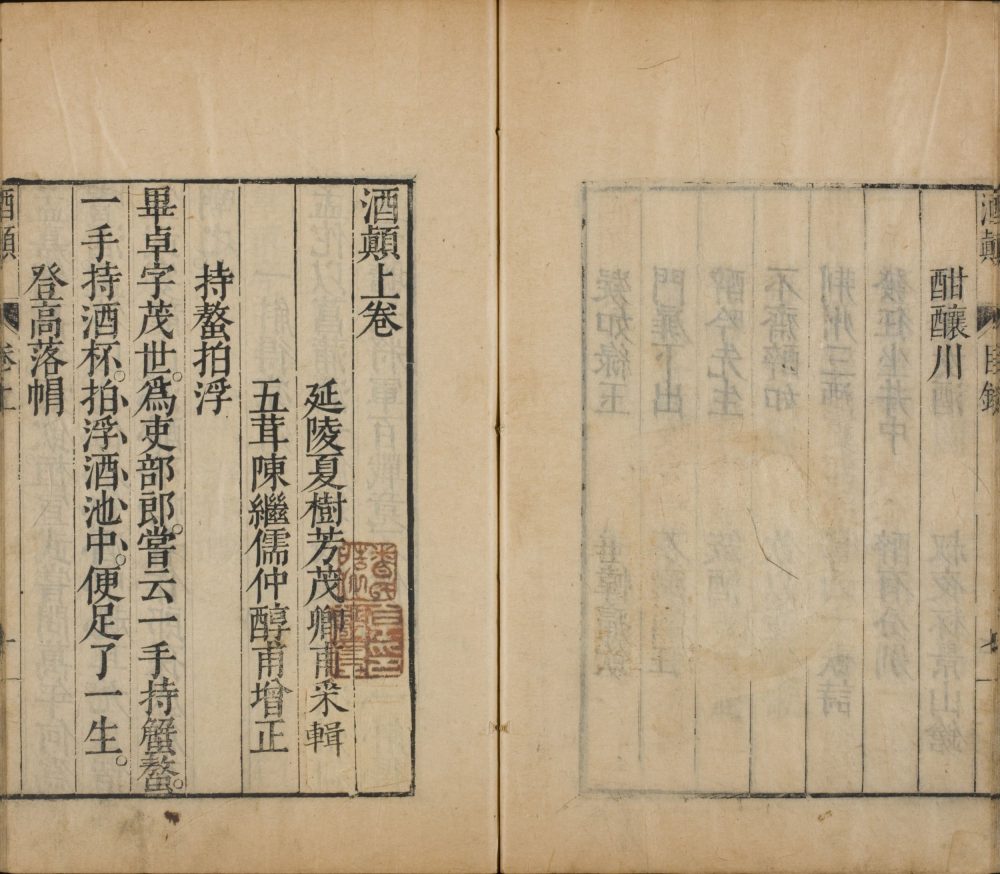 酒顛 目錄
酣釀川
酒顛上卷
延陵夏樹芳茂卿甫采輯
五茸陳繼儒仲醇甫增正
持螯拍浮
畢卓字茂世。爲吏部郎。嘗云一手持蟹螯。
一手持酒杯。拍浮酒池中。便足了一生。
登高落帽
酒顛 卷上 一